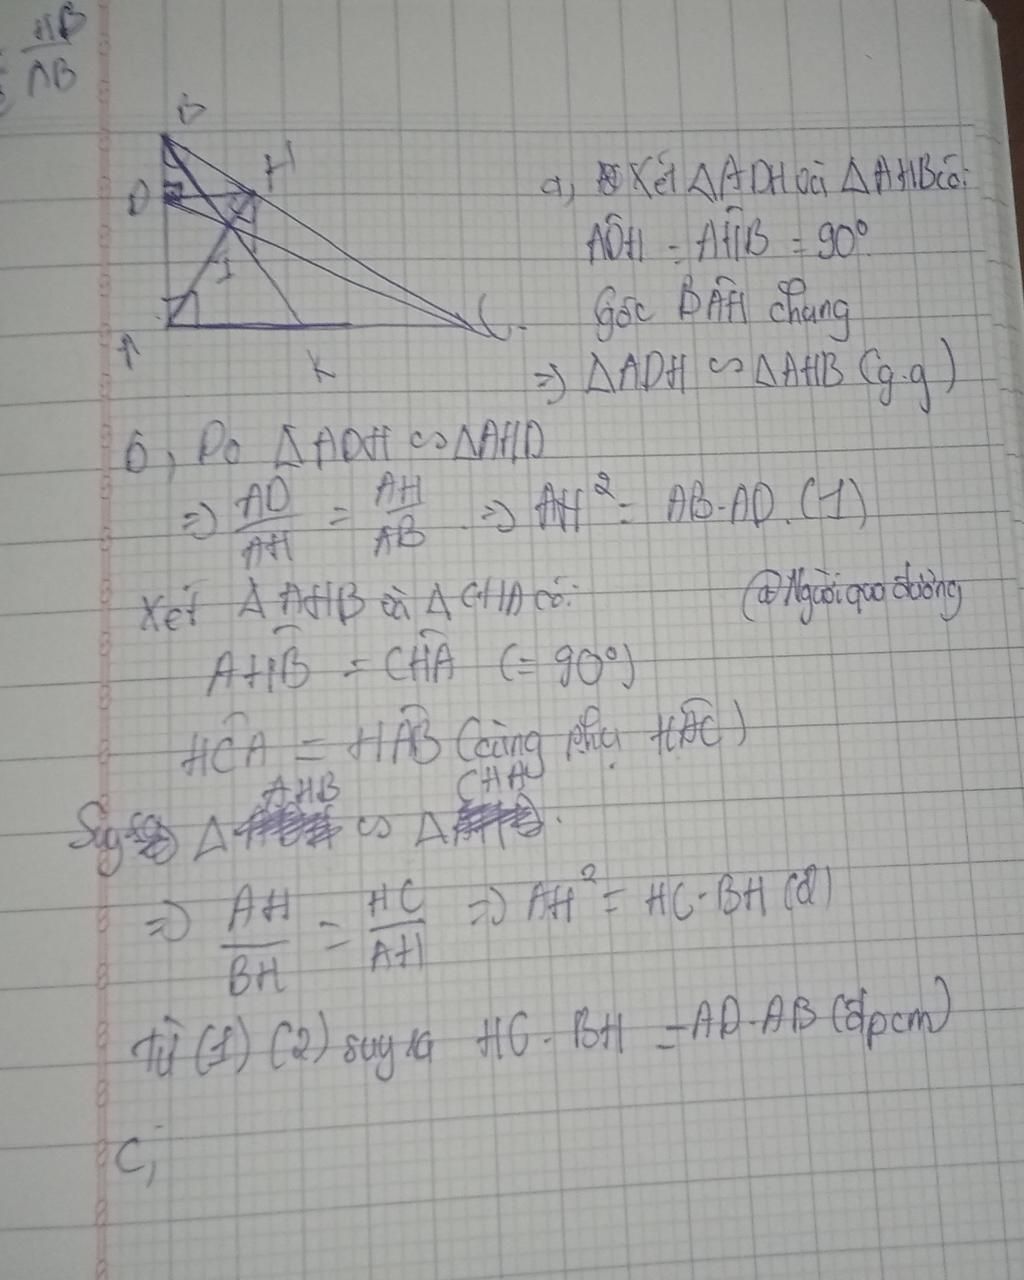 HB
AB
B
H
D
I
A
K
C
a, Xét ΔADH và ΔAHB có:
ADH = AHB = 90°
Góc BAH chung
=> ΔADH ∽ ΔAHB (g.g)
b, Do ΔADH ∽ ΔAHD
=> AD/AH = AH/AB => AH² = AB.AD. (1)
Xét ΔAHB và ΔCHA có:
@Người qua đường
AHB = CHA (= 90°)
HCA = HAB (cùng phụ HAC)
Suy ra Δ AHB ∽ Δ CHA.
=> AH/BH = HC/AH => AH² = HC.BH (2)
Từ (1) (2) suy ra HC.BH = AD.AB (đpcm)
C,